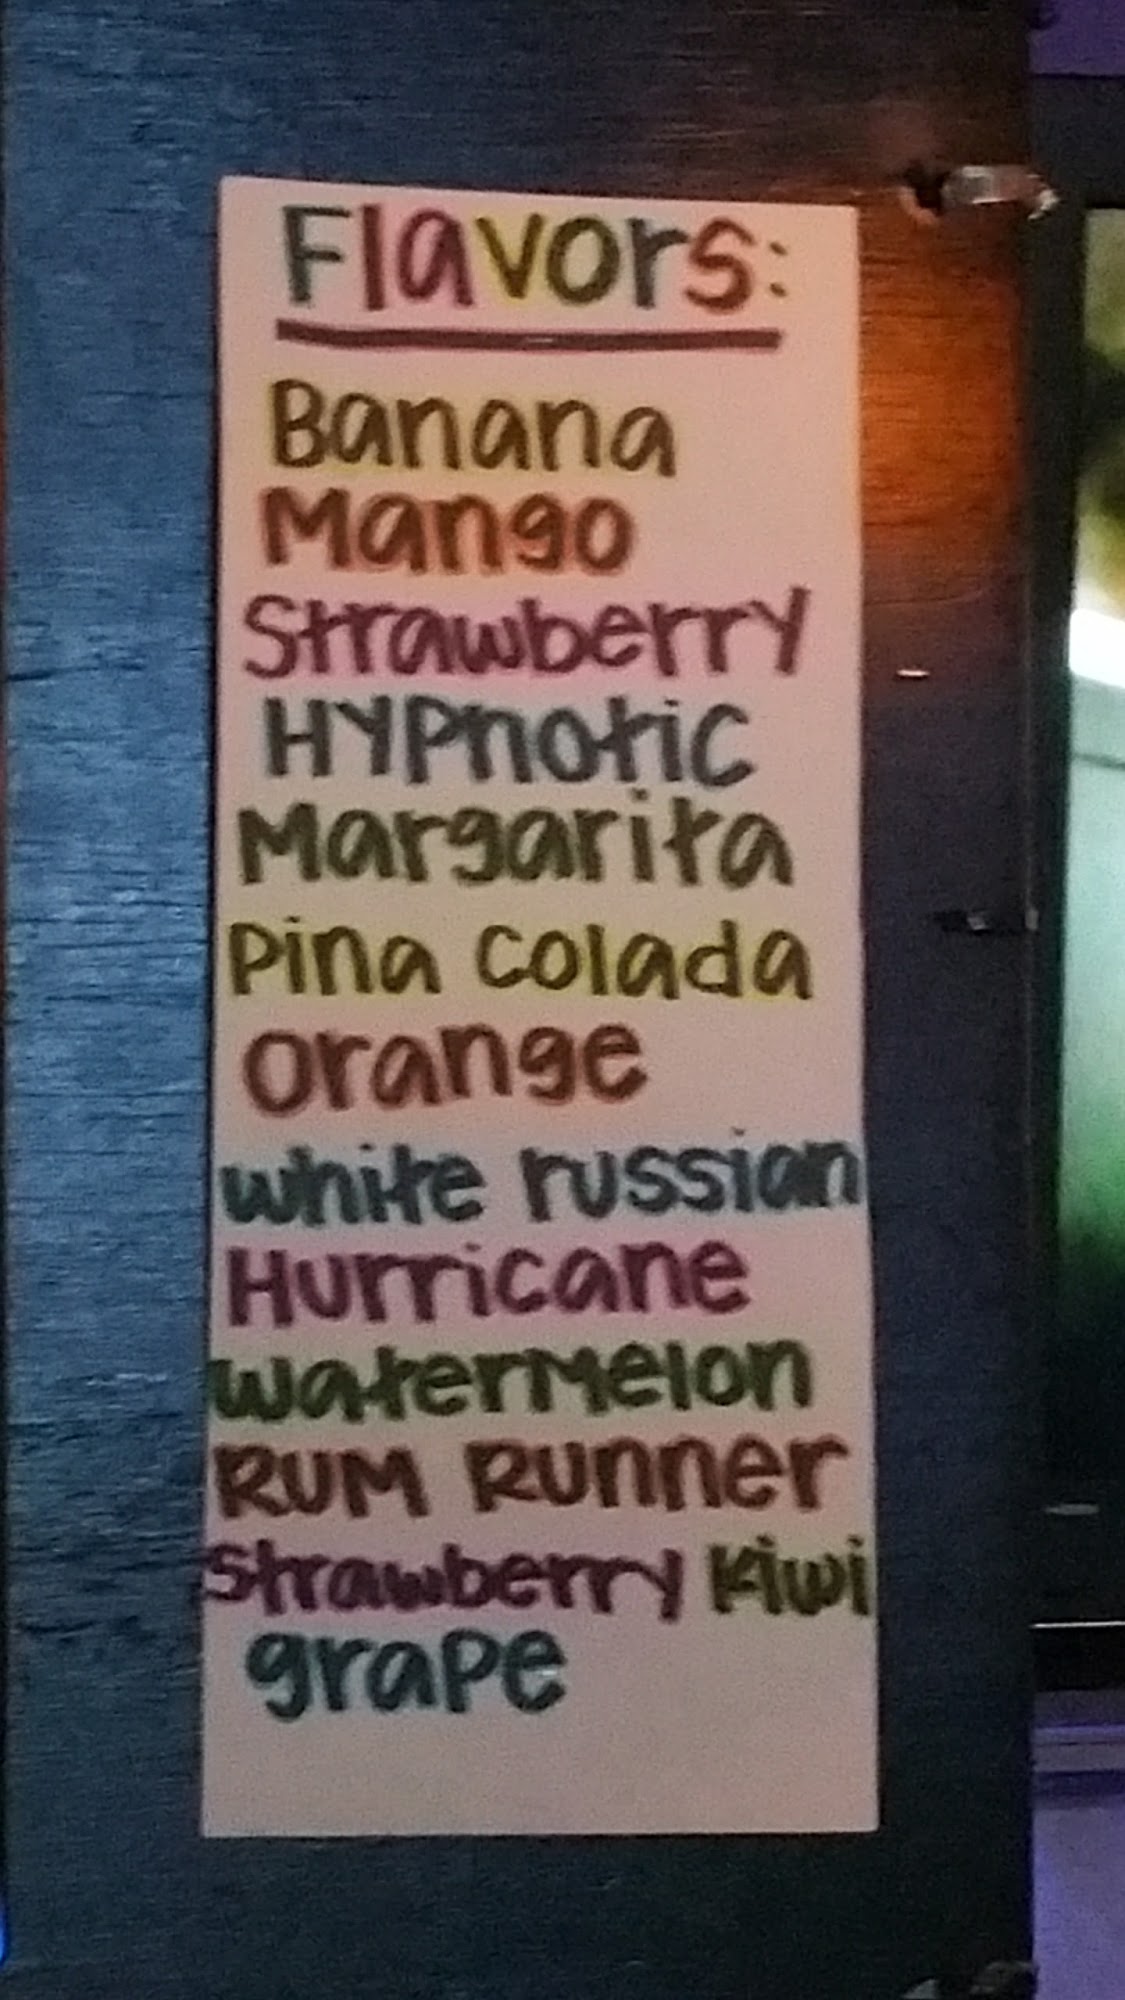 Flavors:
Banana
Mango
Strawberry
Hypnotic
Margarita
Pina Colada
Orange
white russian
Hurricane
watermelon
RUM Runner
Strawberry Kiwi
grape